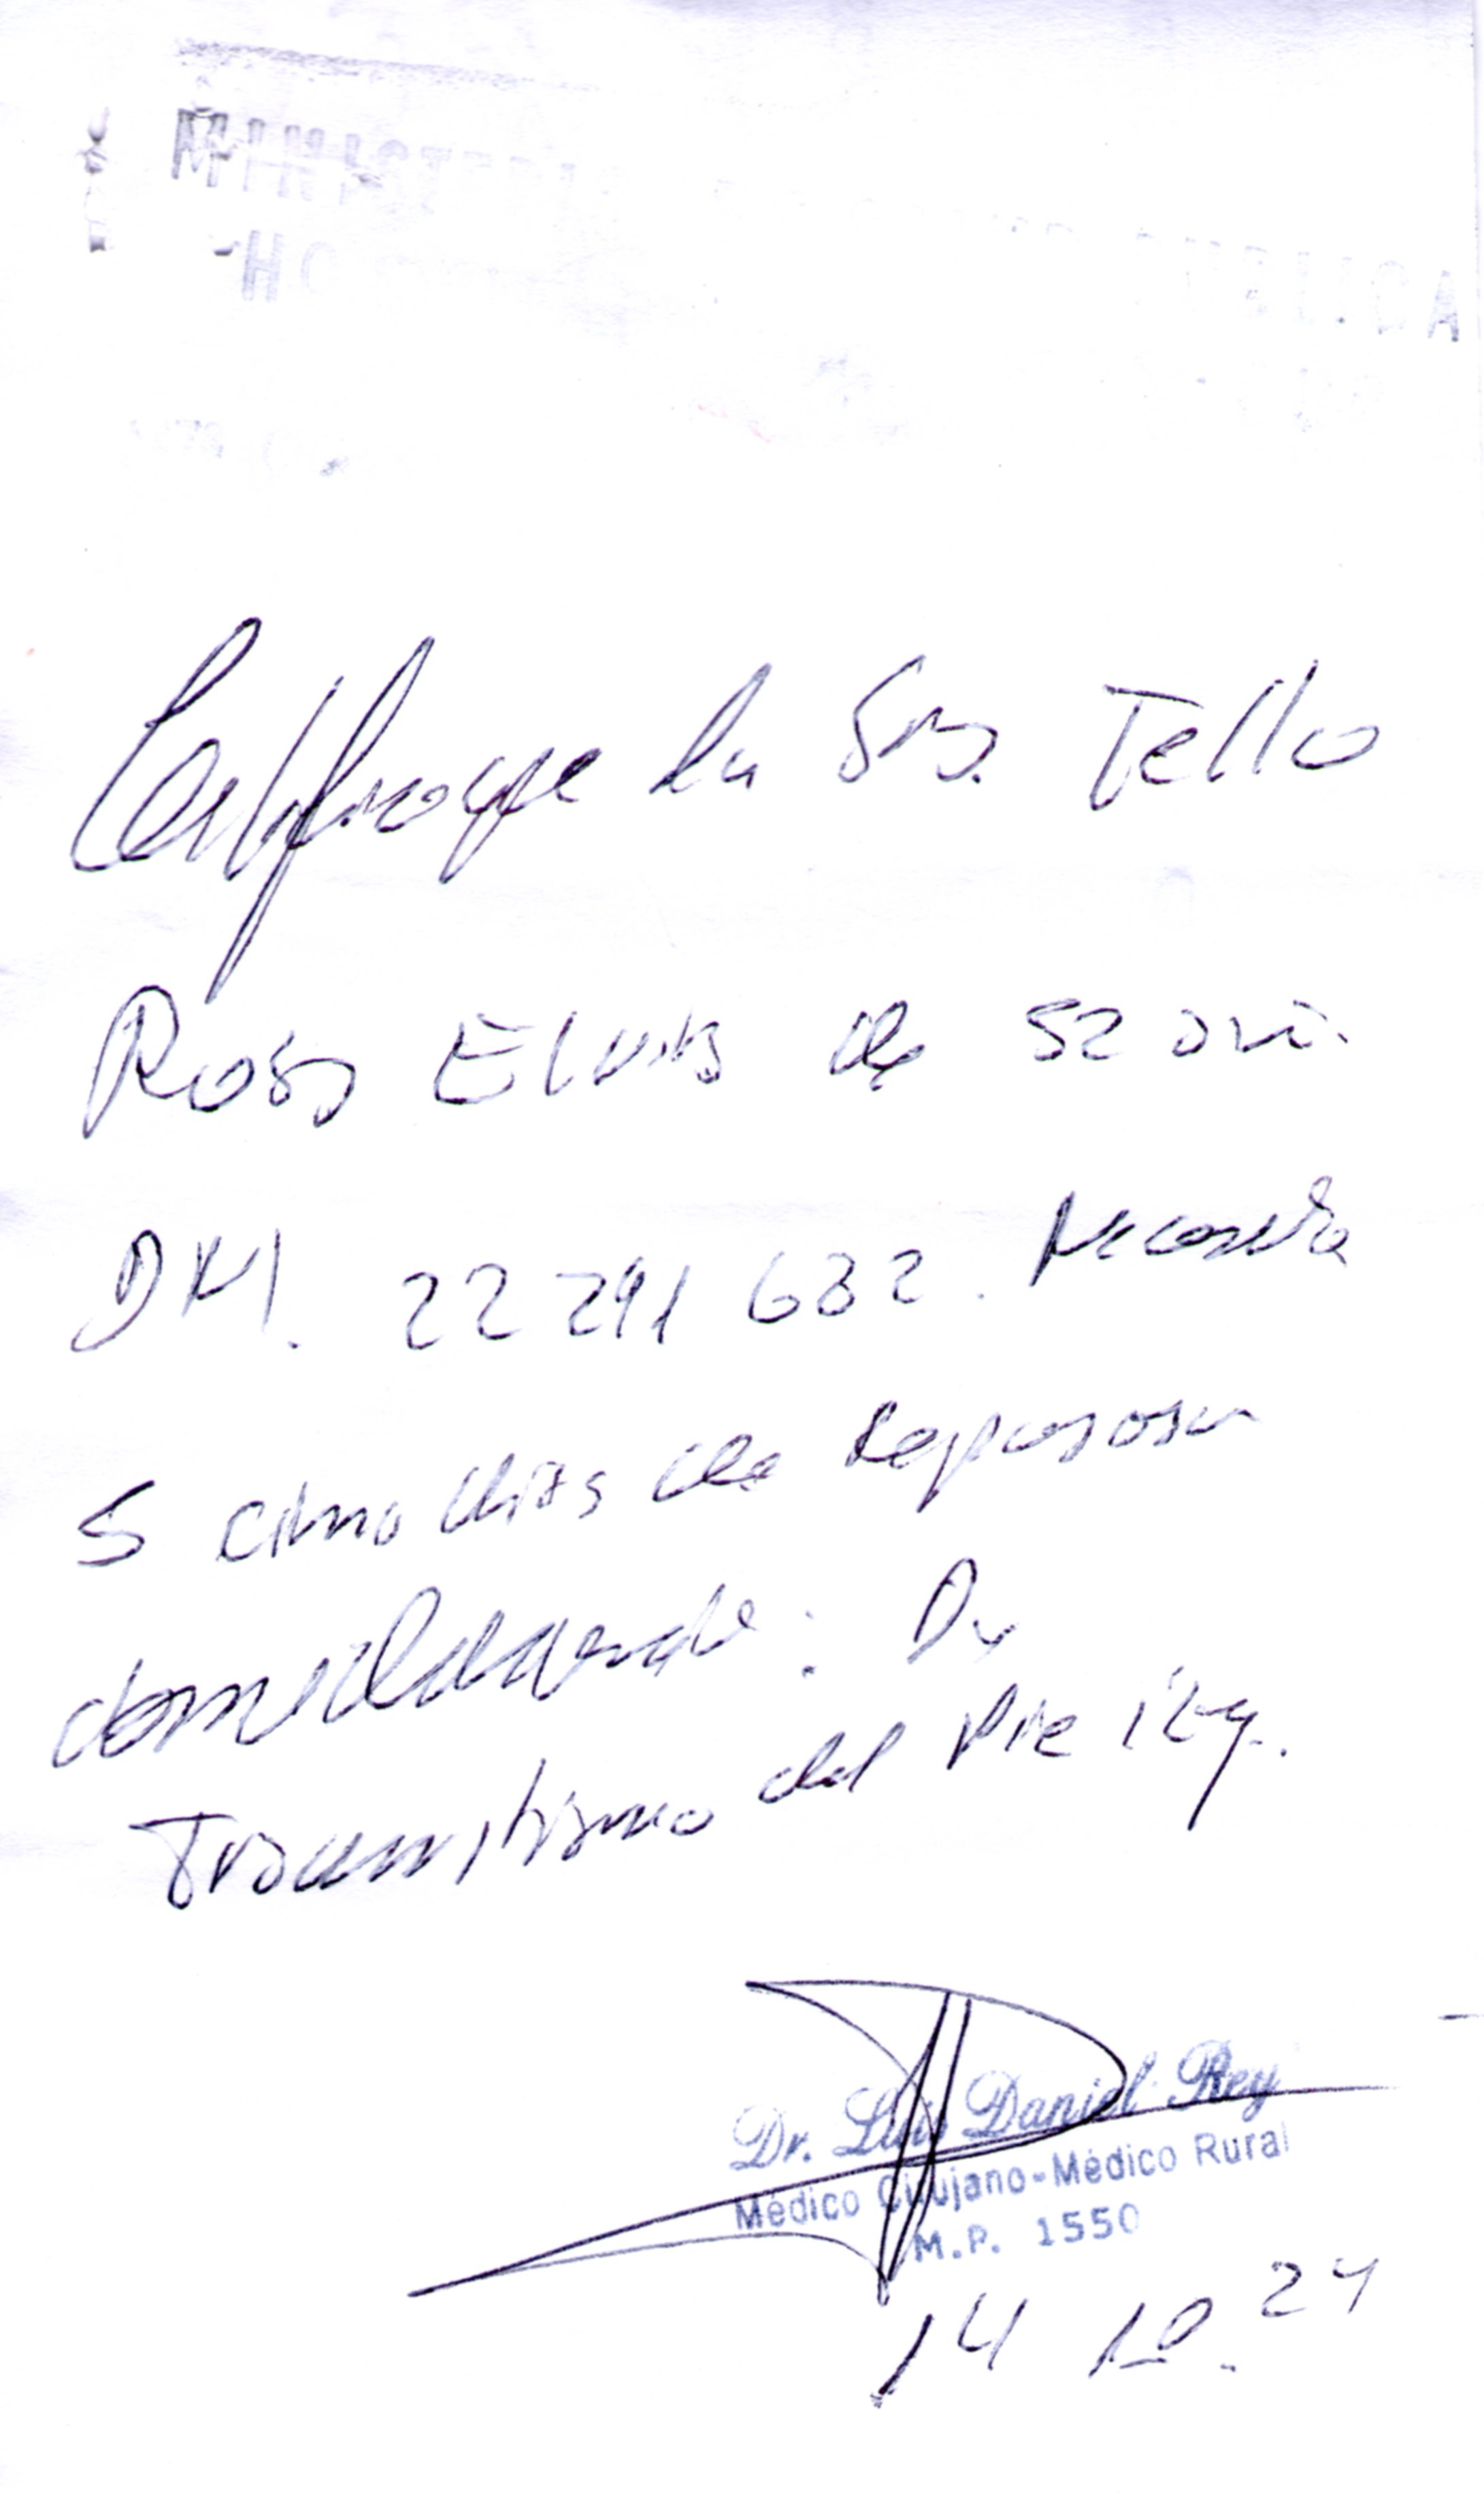 MINISTERIO PUBLICA
HO
Certifico que la Sra. Tello
Rosa Elvira de 52 años.
DNI. 22 291 632. Necesita
5 cinco días de reposo
domiciliario : Dx
Traumatismo del pie izq.
Dr. Luis Daniel Rey
Médico Cirujano-Médico Rural
M.P. 1550
14 10. 24